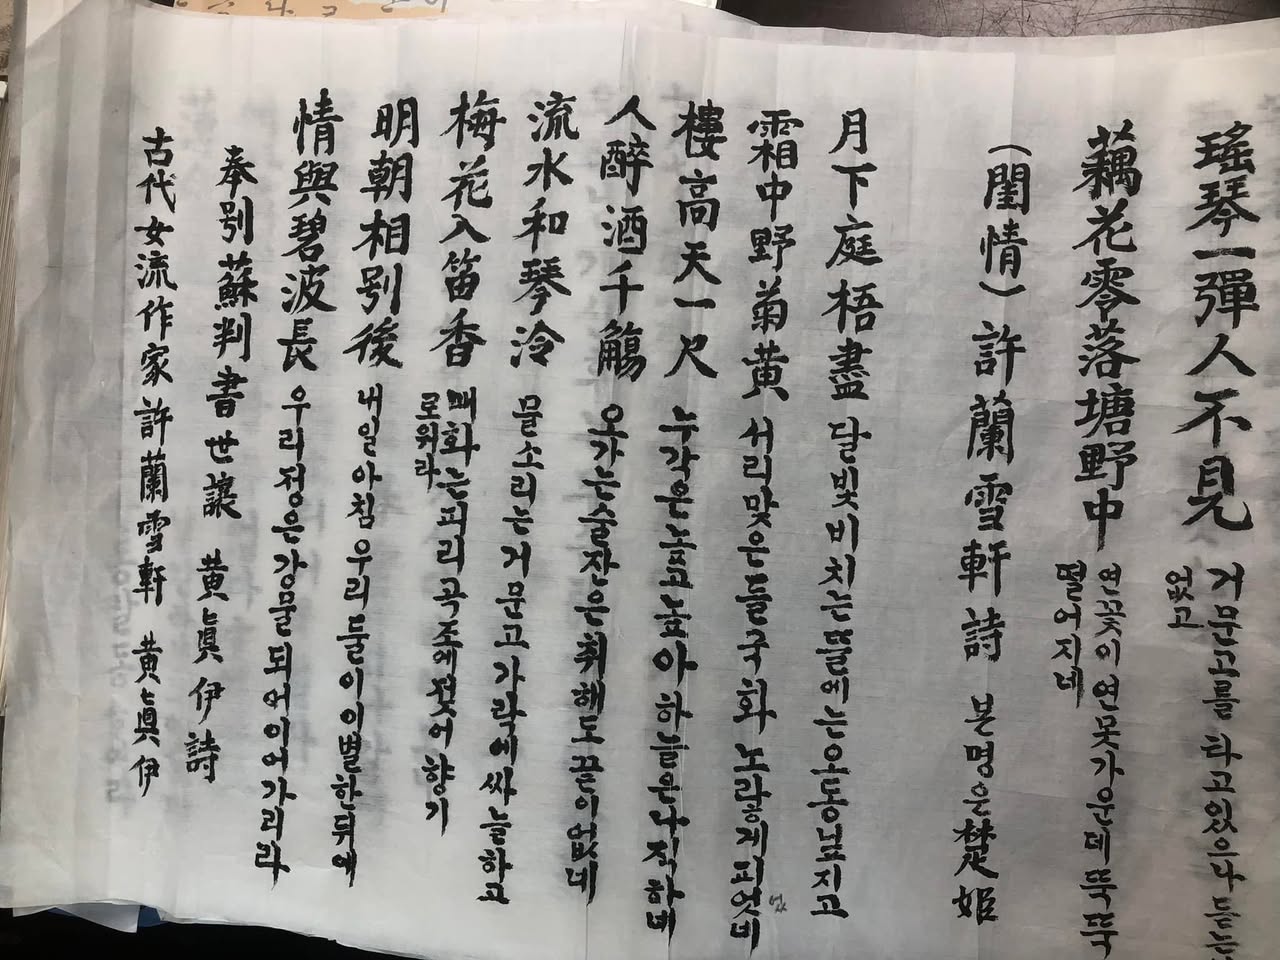 瑤琴一彈人不見 거문고를 타고있으나 듣는
없고
藕花零落塘野中 연꽃이 연못가운데 뚝뚝
떨어지네
(閨情) 許蘭雪軒 詩 본명은 楚姬
月下庭梧盡 달빛비치는 뜰에는 오동닢지고
霜中野菊黃 서리맞은 들국화 노랗게 되엇네
樓高天一尺 누각은 높고높아 하늘은 나직하네
人醉酒千觴 오가는 술잔은 취해도 끝이없네
流水和琴冷 물소리는 거문고 가락에 싸늘하고
梅花入笛香 매화는 피리곡조에 젖어 향기
로워라
明朝相別後 내일아침 우리둘이 이별한뒤에
情與碧波長 우리정은 강물되어 이어가리라
奉別蘇判書世讓 黃眞伊 詩
古代女流作家 許蘭雪軒 黃眞伊